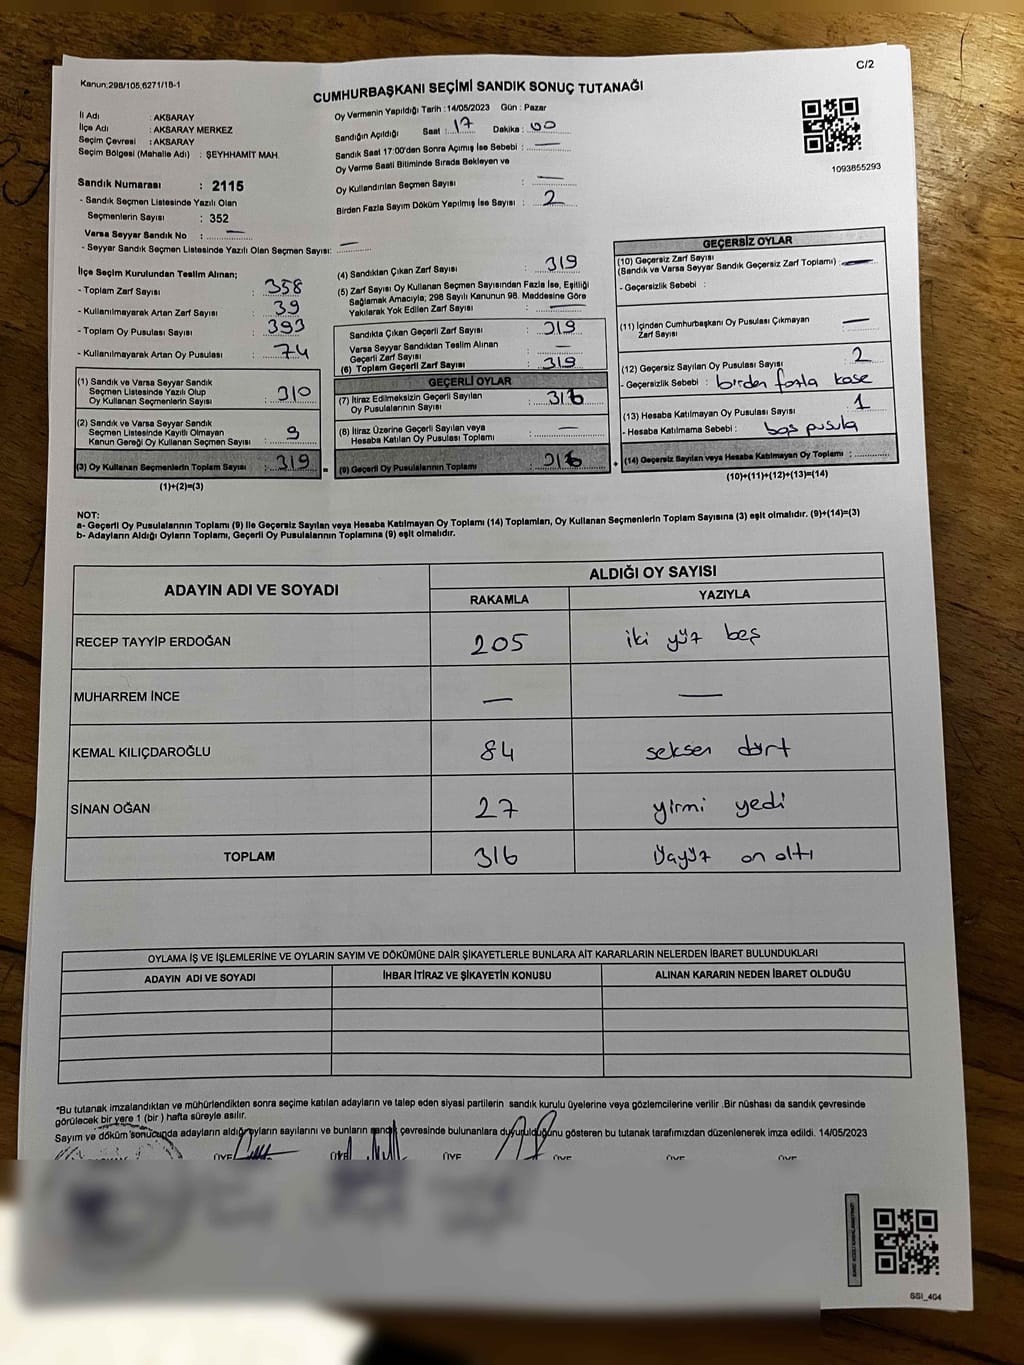 C/2
Kanun:298/105,6271/18-1
CUMHURBAŞKANI SEÇİMİ SANDIK SONUÇ TUTANAĞI
İl Adı : AKSARAY
İlçe Adı : AKSARAY MERKEZ
Seçim Çevresi : AKSARAY
Seçim Bölgesi (Mahalle Adı) : ŞEYHHAMİT MAH.
Sandık Numarası : 2115
- Sandık Seçmen Listesinde Yazılı Olan
Seçmenlerin Sayısı : 352
Varsa Seyyar Sandık No : —
- Seyyar Sandık Seçmen Listesinde Yazılı Olan Seçmen Sayısı: —
Oy Vermenin Yapıldığı Tarih : 14/05/2023 Gün : Pazar
Sandığın Açıldığı Saat : 17 Dakika : 00
Sandık Saat 17:00'den Sonra Açımış İse Sebebi : —
Oy Verme Saati Bitiminde Sırada Bekleyen ve
Oy Kullandırılan Seçmen Sayısı : —
Birden Fazla Sayım Döküm Yapılmış İse Sayısı : 2
1093855293
İlçe Seçim Kurulundan Teslim Alınan;
- Toplam Zarf Sayısı : 358
- Kullanılmayarak Artan Zarf Sayısı : 39
- Toplam Oy Pusulası Sayısı : 393
- Kullanılmayarak Artan Oy Pusulası : 74
(1) Sandık ve Varsa Seyyar Sandık
Seçmen Listesinde Yazılı Olup
Oy Kullanan Seçmenlerin Sayısı : 310
(2) Sandık ve Varsa Seyyar Sandık
Seçmen Listesinde Kayıtlı Olmayan
Kanun Gereği Oy Kullanan Seçmen Sayısı : 9
(3) Oy Kullanan Seçmenlerin Toplam Sayısı : 319
(1)+(2)=(3)
(4) Sandıktan Çıkan Zarf Sayısı : 319
(5) Zarf Sayısı Oy Kullanan Seçmen Sayısından Fazla İse, Eşitliği
Sağlamak Amacıyla; 298 Sayılı Kanunun 98. Maddesine Göre
Yakılarak Yok Edilen Zarf Sayısı : —
Sandıkta Çıkan Geçerli Zarf Sayısı : 319
Varsa Seyyar Sandıktan Teslim Alınan
Geçerli Zarf Sayısı : —
(6) Toplam Geçerli Zarf Sayısı : 319
GEÇERLİ OYLAR
(7) İtiraz Edilmeksizin Geçerli Sayılan
Oy Pusulalarının Sayısı : 316
(8) İtiraz Üzerine Geçerli Sayılan veya
Hesaba Katılan Oy Pusulası Toplamı : —
(9) Geçerli Oy Pusulalarının Toplamı : 316
GEÇERSİZ OYLAR
(10) Geçersiz Zarf Sayısı
(Sandık ve Varsa Seyyar Sandık Geçersiz Zarf Toplamı) : —
- Geçersizlik Sebebi :
(11) İçinden Cumhurbaşkanı Oy Pusulası Çıkmayan
Zarf Sayısı : —
(12) Geçersiz Sayılan Oy Pusulası Sayısı : 2
- Geçersizlik Sebebi : birden fazla kaşe
(13) Hesaba Katılmayan Oy Pusulası Sayısı : 1
- Hesaba Katılmama Sebebi : boş pusula
(14) Geçersiz Sayılan veya Hesaba Katılmayan Oy Toplamı :
(10)+(11)+(12)+(13)=(14)
NOT:
a- Geçerli Oy Pusulalarının Toplamı (9) ile Geçersiz Sayılan veya Hesaba Katılmayan Oy Toplamı (14) Toplamları, Oy Kullanan Seçmenlerin Toplam Sayısına (3) eşit olmalıdır. (9)+(14)=(3)
b- Adayların Aldığı Oyların Toplamı, Geçerli Oy Pusulalarının Toplamına (9) eşit olmalıdır.
ADAYIN ADI VE SOYADI
ALDIĞI OY SAYISI
RAKAMLA YAZIYLA
RECEP TAYYİP ERDOĞAN 205 iki yüz beş
MUHARREM İNCE — —
KEMAL KILIÇDAROĞLU 84 seksen dört
SİNAN OĞAN 27 yirmi yedi
TOPLAM 316 üçyüz on altı
OYLAMA İŞ VE İŞLEMLERİNE VE OYLARIN SAYIM VE DÖKÜMÜNE DAİR ŞİKAYETLERLE BUNLARA AİT KARARLARIN NELERDEN İBARET BULUNDUKLARI
ADAYIN ADI VE SOYADI İHBAR İTİRAZ VE ŞİKAYETİN KONUSU ALINAN KARARIN NEDEN İBARET OLDUĞU
*Bu tutanak imzalandıktan ve mühürlendikten sonra seçime katılan adayların ve talep eden siyasi partilerin sandık kurulu üyelerine veya gözlemcilerine verilir .Bir nüshası da sandık çevresinde
görülecek bir yere 1 (bir ) hafta süreyle asılır.
Sayım ve döküm sonucunda adayların aldığı oyların sayılarını ve bunların sandık çevresinde bulunanlara duyurulduğunu gösteren bu tutanak tarafımızdan düzenlenerek imza edildi. 14/05/2023
ÜYE ÜYE ÜYE ÜYE ÜYE ÜYE
SSI_404